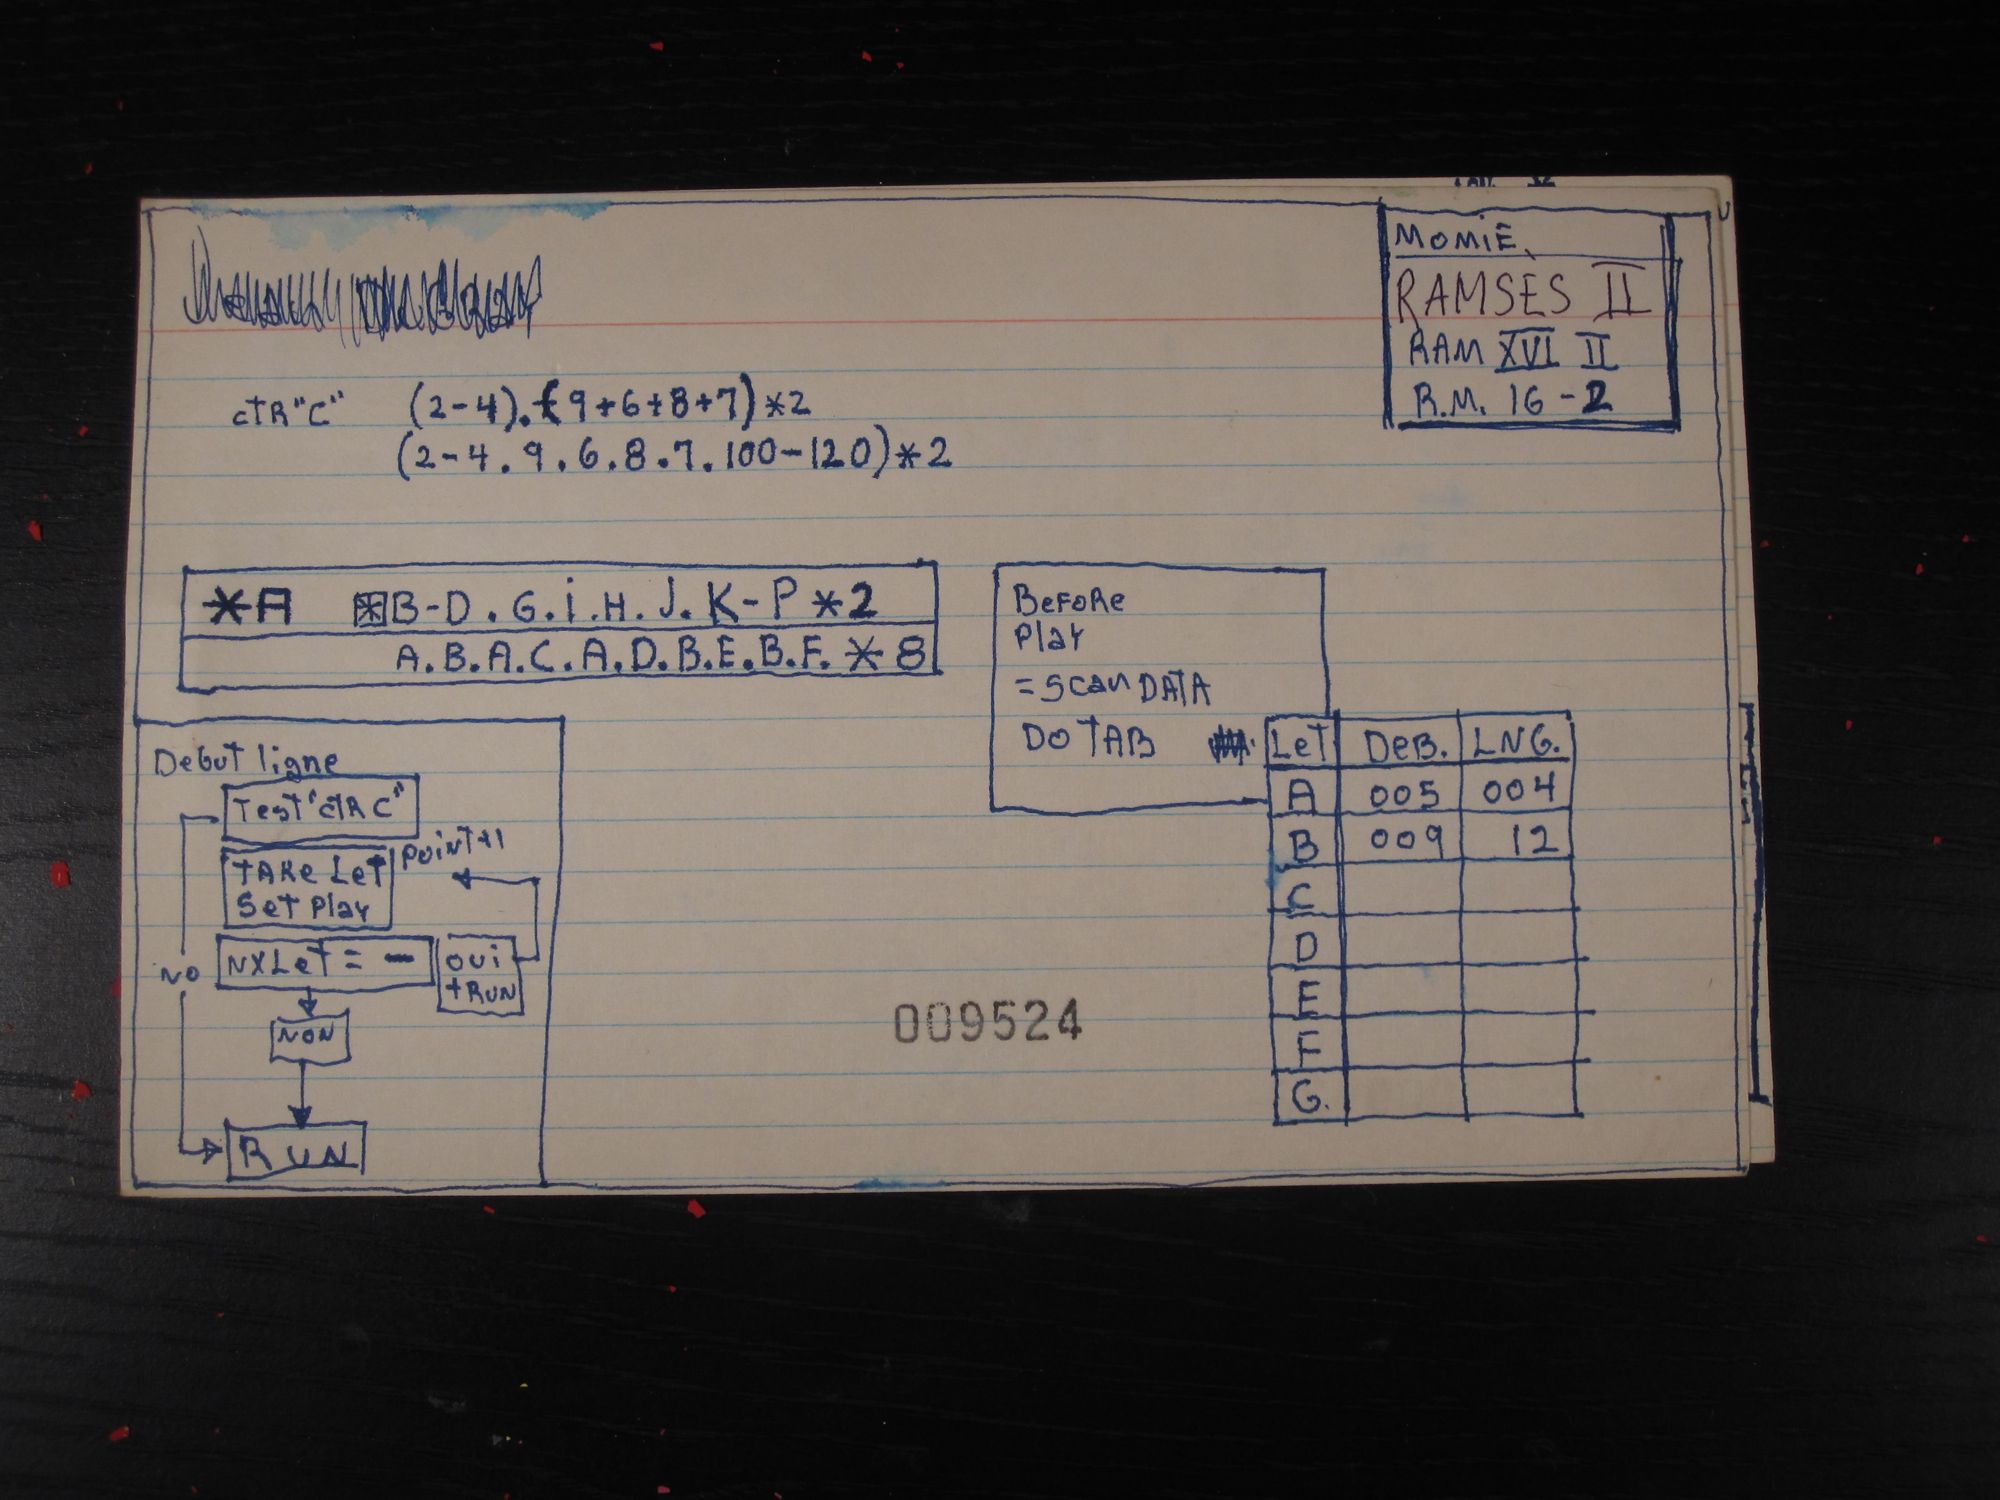 MOMIE
RAMSÈS II
RAM XVI II
R.M. 16-2
CTR"C" (2-4).(9+6+8+7)*2
(2-4.9.6.8.7.100-120)*2
*A *B-D.G.i.H.J.K-P*2
A.B.A.C.A.D.B.E.B.F.*8
BeFoRe
Play
=ScanDATA
DO TAB
LeT DeB. LNG.
A 005 004
B 009 12
C
D
E
F
G.
Debut ligne
Test "CTRC"
TAKe LeT
Set Play
POiNT+1
NXLeT = -
oui
+RUN
NO
NON
RUN
009524